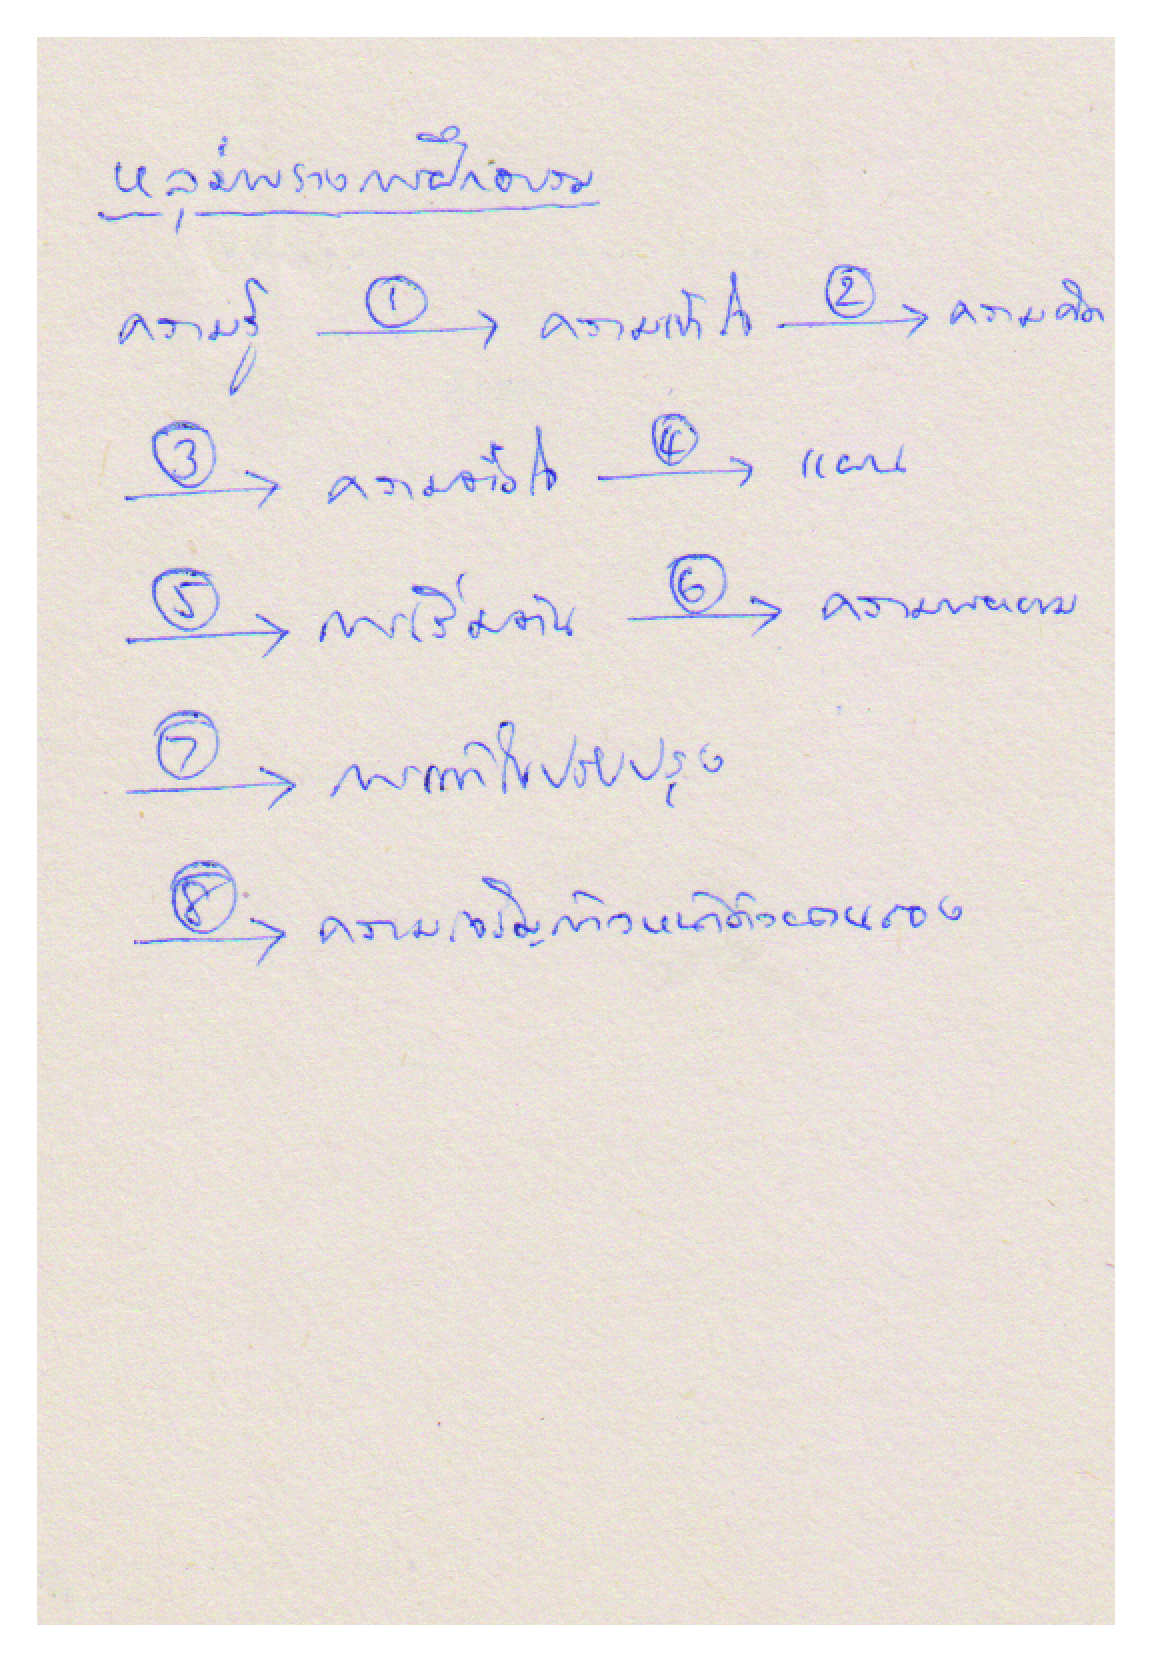 หลุมพรางการฝึกอบรม
ความรู้ ① → ความเข้าใจ ② → ความคิด
③ → ความตั้งใจ ④ → แผน
⑤ → การเริ่มต้น ⑥ → ความพยายาม
⑦ → การแก้ไขปรับปรุง
⑧ → ความเจริญก้าวหน้าด้วยตนเอง